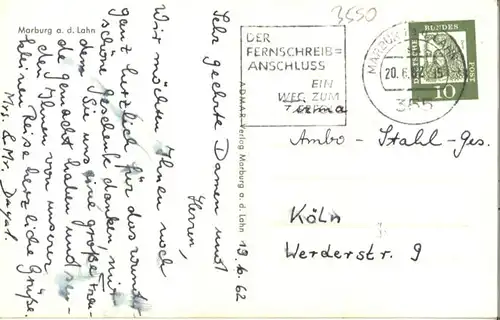 Marburg a. d. Lahn
Sehr geehrte Damen und
Herren,
Wir möchten Ihnen noch
ganz herzlich für das wunder-
schöne Geschenk danken, mit
dem Sie uns eine große Freu-
de gemacht haben und sen-
den Ihnen von unserer
kleinen Reise herzliche Grüße.
Mrs. & Mr. Dayal.
19.6.62
ADMAR-Verlag Marburg a. d. Lahn
3550
DER
FERNSCHREIB=
ANSCHLUSS
EIN
WEG ZUM
ERFOLG
MARBURG
20.6.62.-15
355
DEUTSCHE BUNDESPOST
10
Firma
Ambo-Stahl-Ges.
Köln
Werderstr. 9